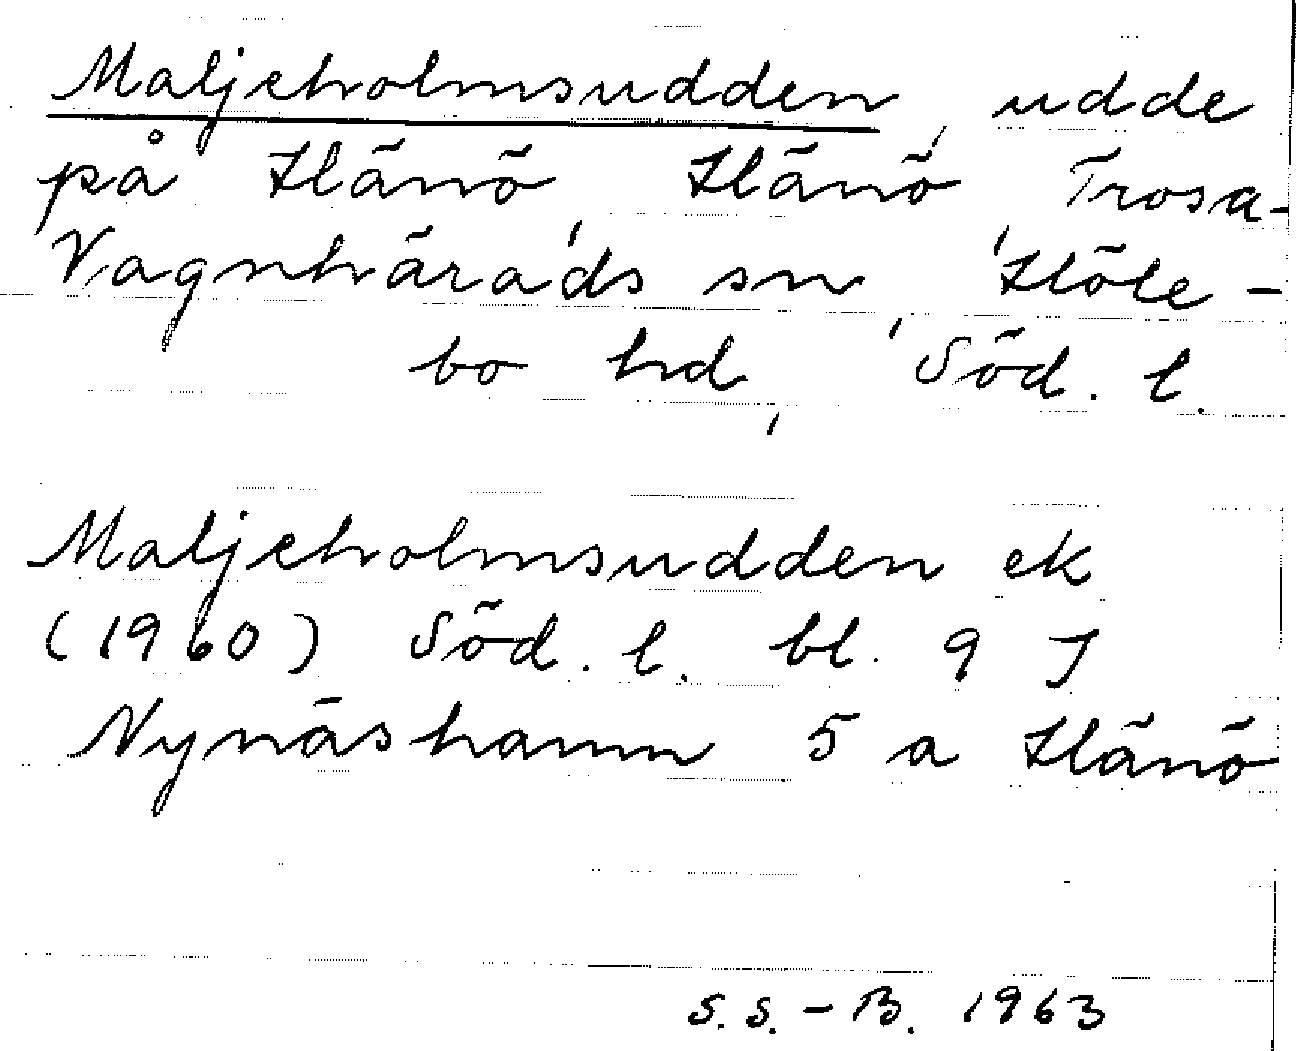 Maljeholmsudden, udde
på Hänö, Hänö, Trosa-
Vagnhärads sn, Höle-
bo hd, Söd. l.
Maljeholmsudden ek
(1960) Söd. l. bl. 9 J
Nynäshamn 5 a Hänö
S.S.-B. 1963